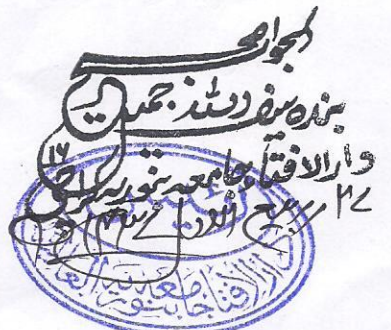 الجواب صحیح
بندہ سیف اللہ جمیل
دارالافتاء جامعہ بنوریہ کراچی
۲۷ ربیع الاول
دارالافتاء جامعہ بنوریہ العالمیہ